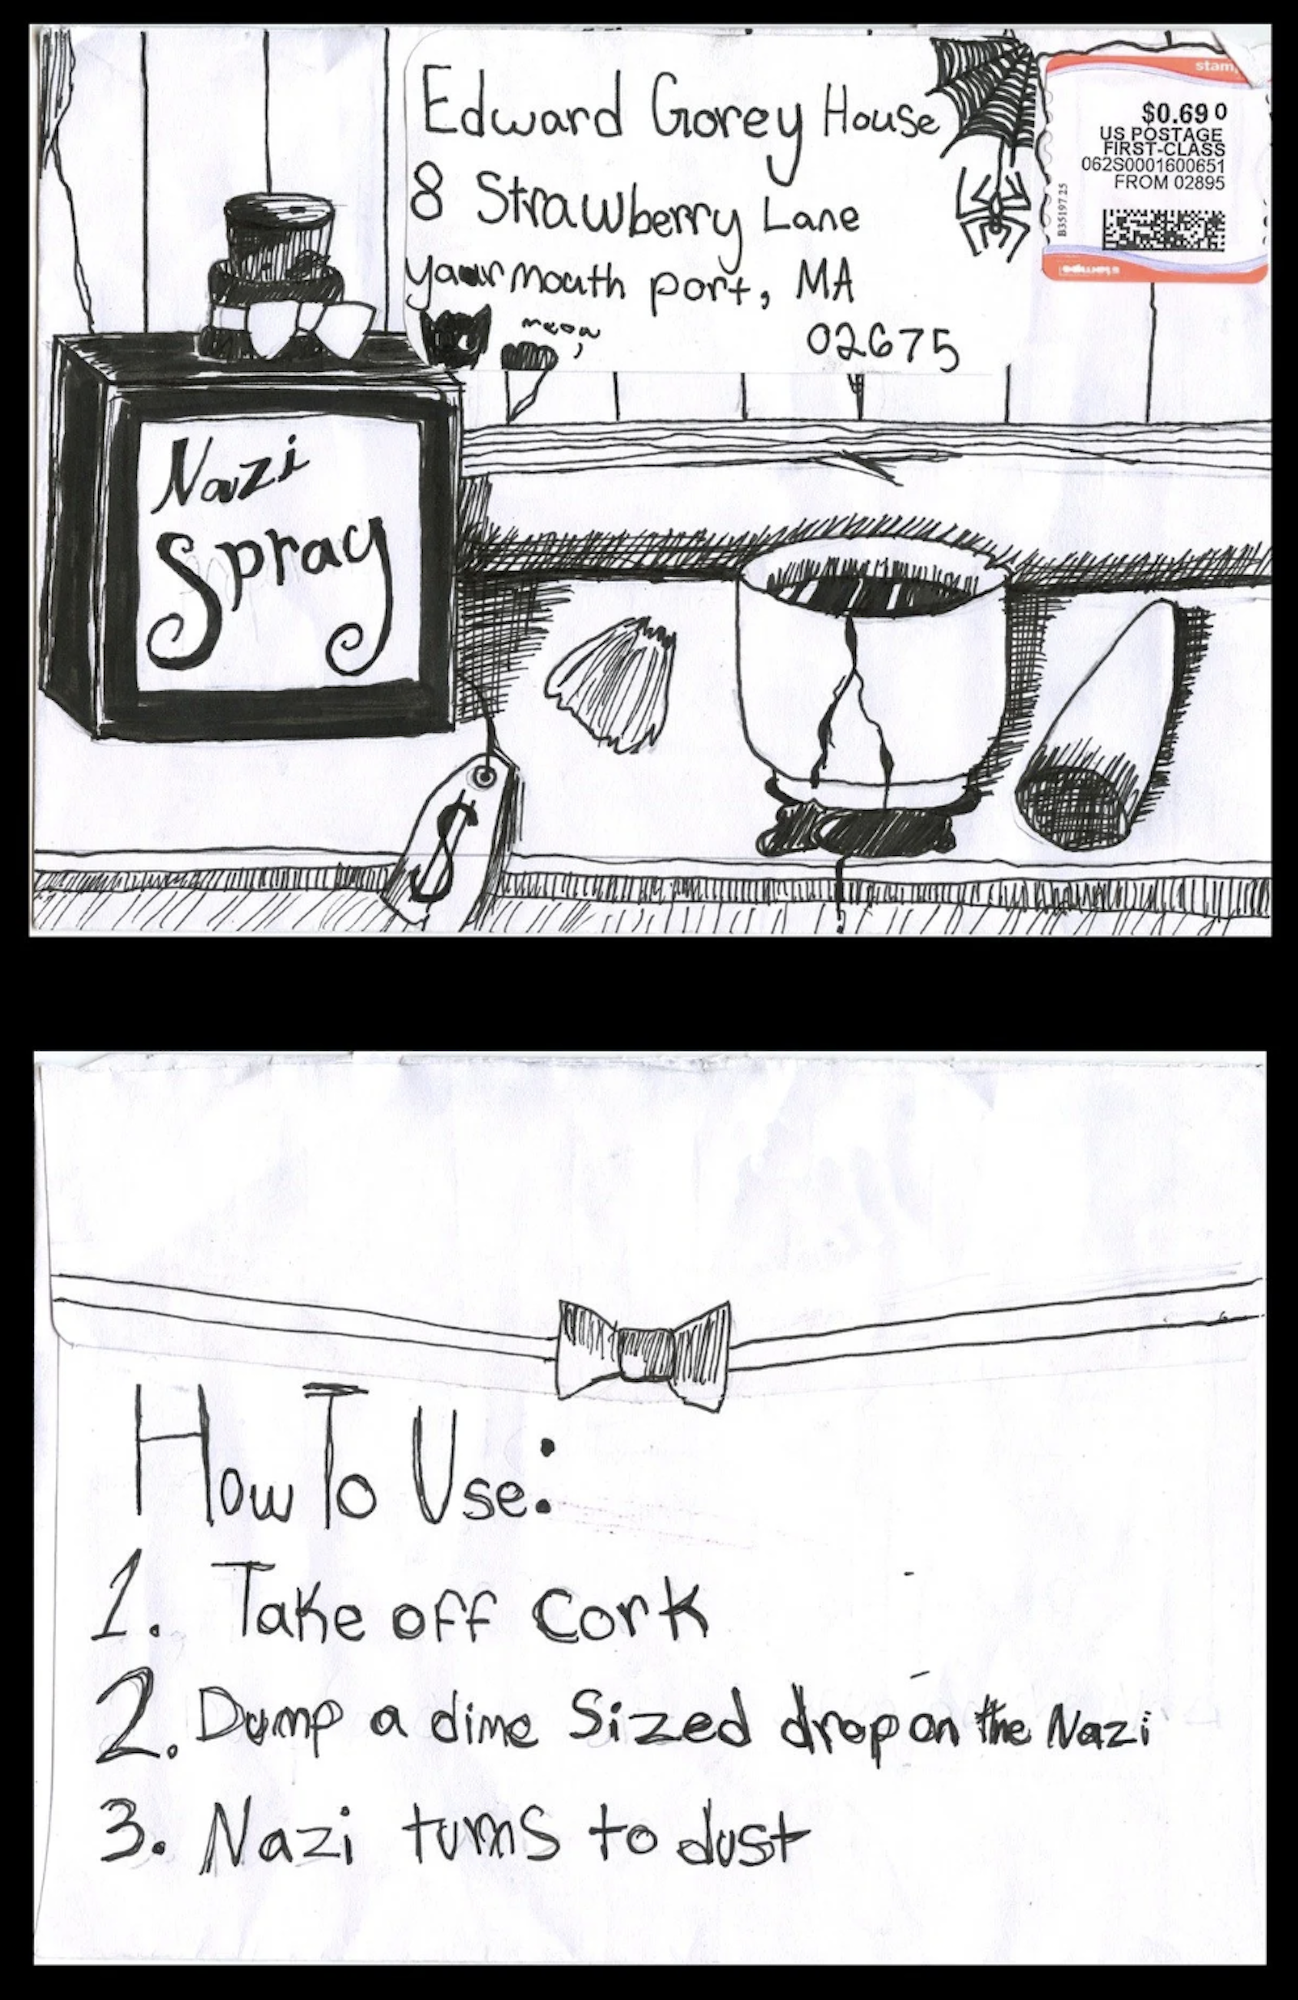 Edward Gorey House
8 Strawberry Lane
yaurmouth port, MA
meow
02675
stam
$0.69 0
US POSTAGE
FIRST-CLASS
062S0001600651
FROM 02895
B35197 25
stamps
Nazi
Spray
$
How To Use:
1. Take off Cork
2. Dump a dime Sized drop on the Nazi
3. Nazi turns to dust